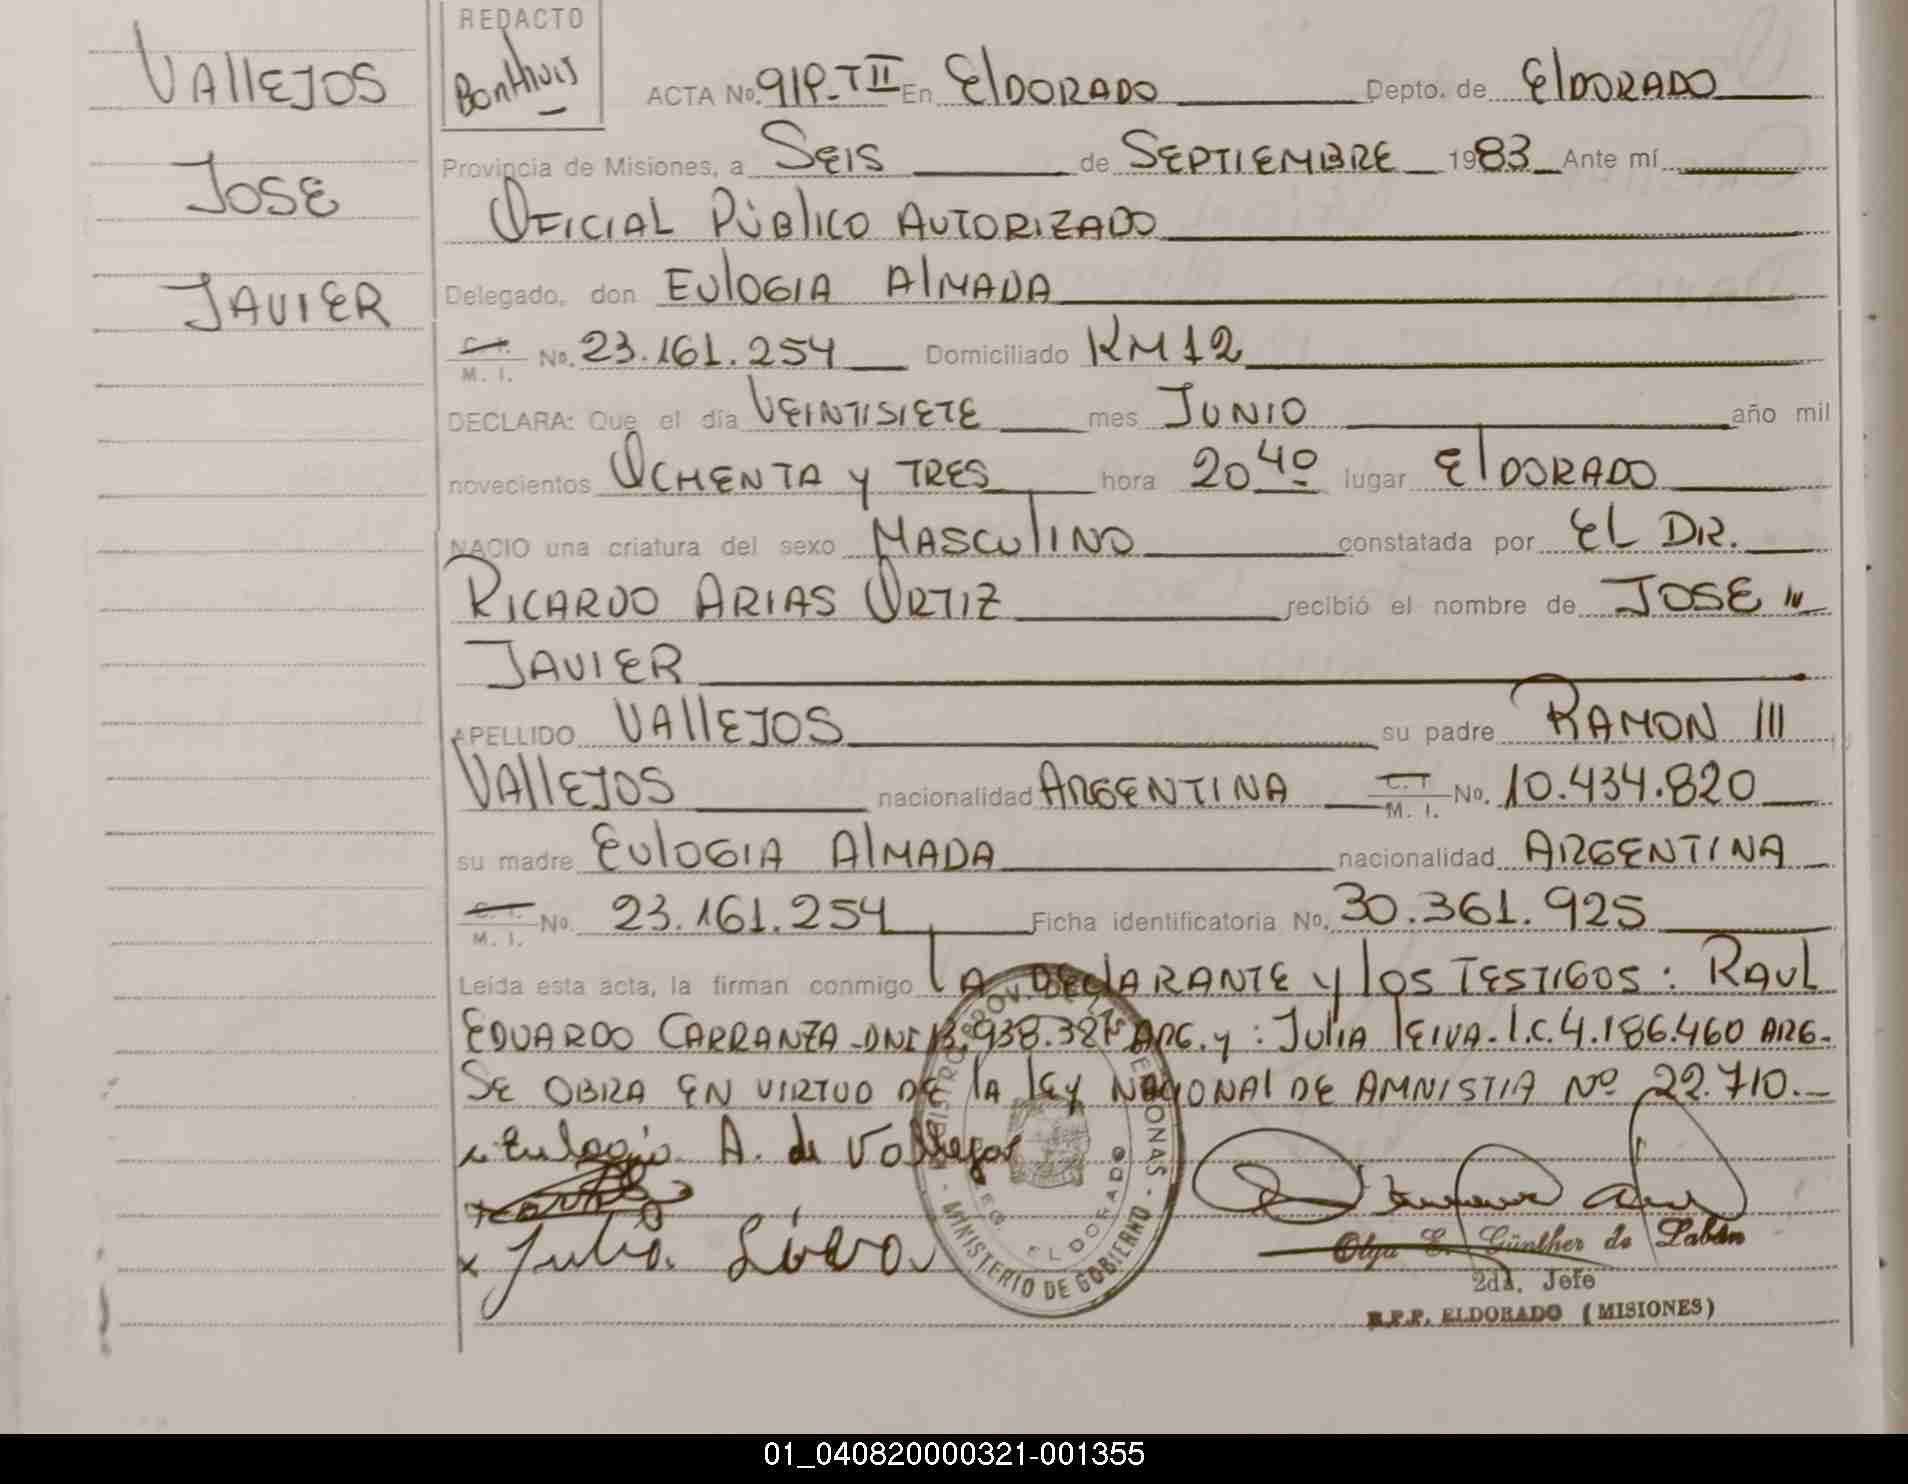 VALLEJOS
JOSE
JAVIER
REDACTO
BONHUIS
ACTA No. 919-TII En ELDORADO Depto. de ELDORADO
Provincia de Misiones, a SEIS de SEPTIEMBRE 1983 Ante mí
OFICIAL PÚBLICO AUTORIZADO
Delegado, don EULOGIA ALMADA
C. I. M. I. No. 23.161.254 Domiciliado KM 12
DECLARA: Que el día VEINTISIETE mes JUNIO año mil
novecientos OCHENTA y TRES hora 20 40 lugar ELDORADO
NACIO una criatura del sexo MASCULINO constatada por EL DR.
RICARDO ARIAS ORTIZ recibió el nombre de JOSE
JAVIER
APELLIDO VALLEJOS su padre RAMON
VALLEJOS nacionalidad ARGENTINA C. I. M. I. No. 10.434.820
su madre EULOGIA ALMADA nacionalidad ARGENTINA
C. I. M. I. No. 23.161.254 Ficha identificatoria No. 30.361.925
Leída esta acta, la firman conmigo LA DECLARANTE y LOS TESTIGOS: RAUL
EDUARDO CARRANZA-DNI ARG. y: JULIA LEIVA-L.C.4.186.460 ARG.
SE OBRA EN VIRTUD DE LA LEY NACIONAL DE AMNISTIA Nº 22.710.-
x Eulogia A. de Vallejos
x Julia Leiva
MINISTERIO DE GOBIERNO
ELDORADO
Olga E. Günther de Labán
2da. Jefe
R.P.P. ELDORADO (MISIONES)
01_040820000321-001355